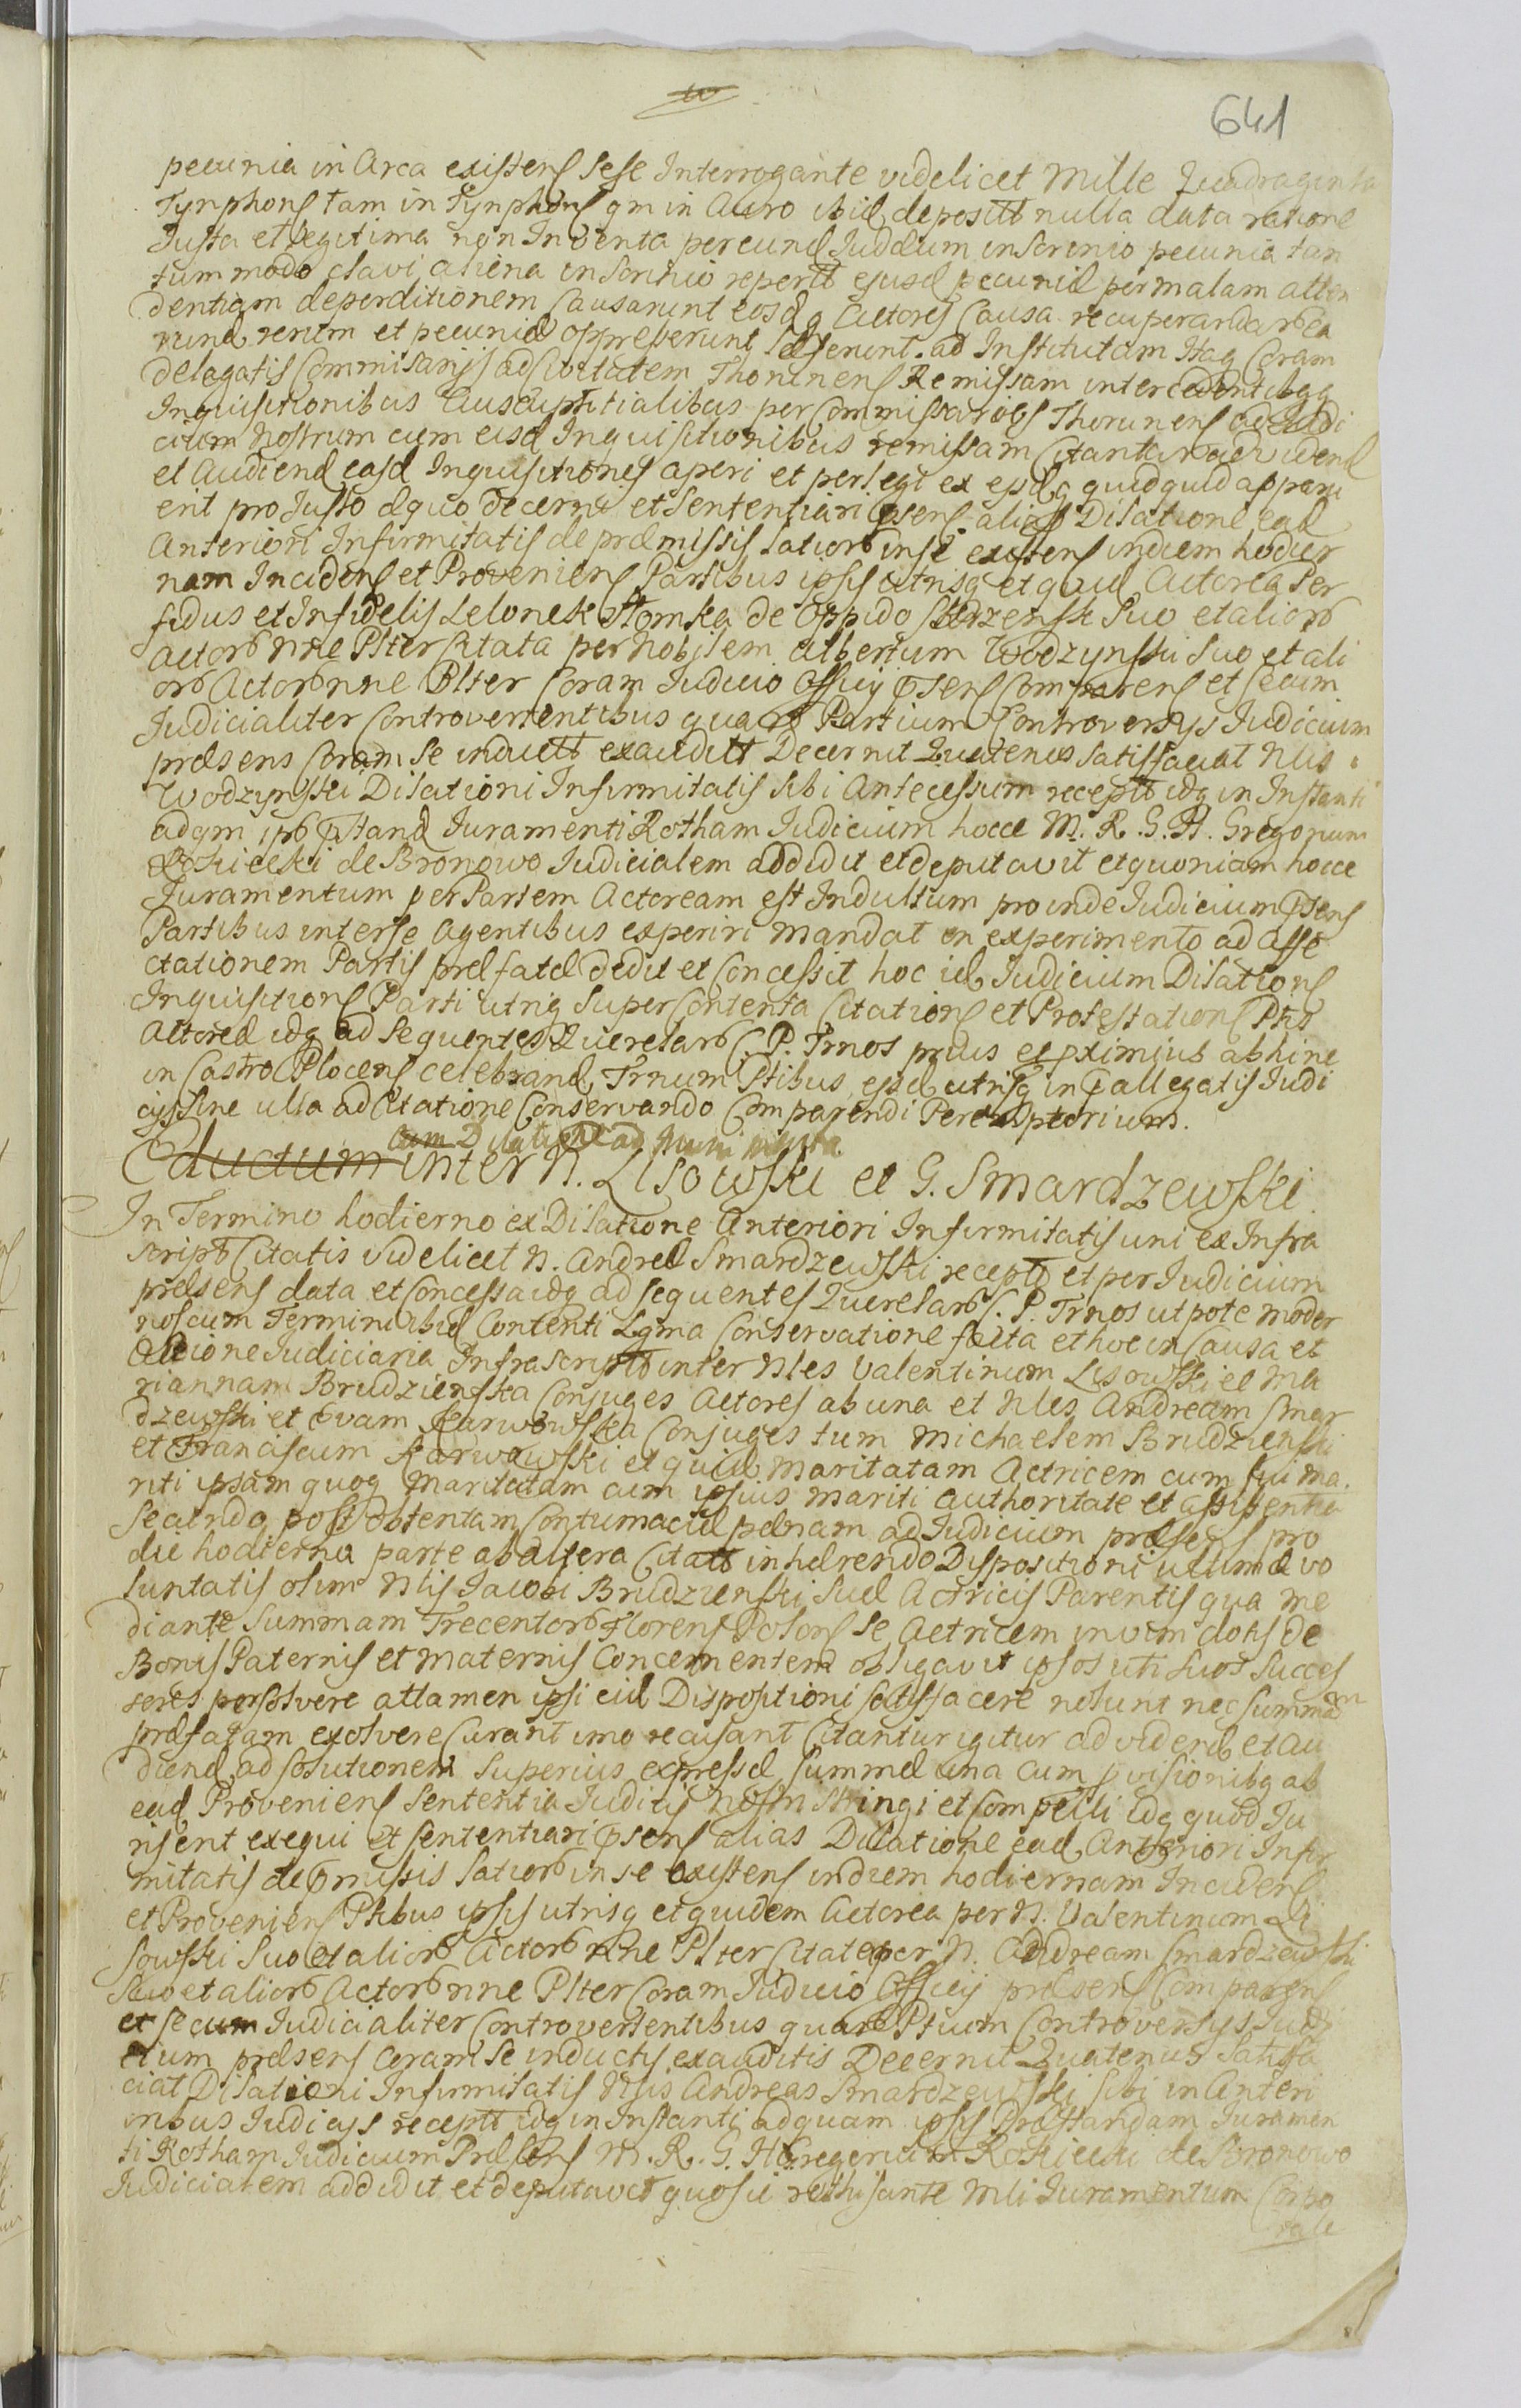 641
pecunia in Arca existens sese Interrogante videlicet Mille Quadraginta
Tynphons tam in Tynphons qm in Auro ibid deposits nulla data ratione
Justa et legitima non Inventa per eund Judaeum in scrinio pecunia tan
tum modo clavi aliena in scrinio reperta ejusd pecuniae per malam atten
dentiam deperditionem causarunt eosdq Actores Causa recuperandarb ea
rund rerum et pecuniae oppresserunt ad Institutam Itaq Coram
delegatis Commissarijs ad Civitatem Thorunens Remissam intercedentibqq
Inquisitionibus per Commissarios Thorunens ad Judi
cium Nostrum cum eisd Inquisitionibus remissam Citantur ad vidend
et Audiend easd Inquisitiones aperi et perlegi ex eisdq quidquid appare
erit pro Justo aequo decerni et Sententiari psens alias Dilatione ead
Anteriori Infirmitatis de praemissis latiorb in se existens in diem hodier
nam Incidens et Proveniens Partibus ipsis utrisq et quid Actorea Per
fidus et Infidelis Lelonek Slomka de Oppido Suo et aliorb
Actorb nne Plter Citata per Nobilem Albertum Wodzynski Suo et ali
orb Actorb nne Plter Coram Judicio Officij psens Comparens et Secum
Judicialiter Controvertentibus quarb Partium Controversijs Judicium
praesens Coram se inductis exauditt Decernit Quatenus satisfaciat Nlis
Wodzynski Dilationi Infirmitatis sibi Antecessum receptt idq in Instanti
ad qm ipb pstand Juramenti Rotham Judicium hocce M. R. G. H. Gregorium
Rosciecki de Bronowo Judicialem addidit et deputavit et quoniam hocce
Juramentum per Partem Actoream est Indultum proinde Judicium psens
Partibus inter se Agentibus experiri mandat in experimento ad affe
ctationem Partis praefatae dedit et Concessit hoc id Judicium Dilations
Inquisitions Parti utriq super Contenta Citations et Protestations Ptis
Actoreae idq ad sequentes Querelarb C. P. Trnos prius et pximius abhinc
in Castro Plocens celebrand Trnum Ptibus eisd utrisq in pallegatis Judi
cijs sine ulla adcitatione Conservando Comparendi Peremptorium.
Cum Dilatione ad
Eductum inter N. Lisowski et G. Smardzewski
In Termino hodierno ex Dilatione Anteriori Infirmitatis uni ex Infra
script Citatis videlicet N. Andreae Smardzewski recepta et per Judicium
praesens data et Concessa idq ad sequentes Querelarb C. P. Trnos utpote moder
nos cum Termini ibid Contenti Lgma Conservatione facta et hoc in Causa et
Actione Judiciaria Infrascripta inter Nles Valentinum Lisowski et Ma
riannam Brudzienska Conjuges Actores ab una et Nles Andream Smar
dzewski et Evam Karwowska Conjuges tum Michaelem Brudzienski
et Franciscum Karwowski et quid Maritatam Actricem cum sui ma
riti ipsam quoq Maritatam cum ipsius mariti authoritate et assistentia
Secundo post obtentam Contumaciae paenam ad Judicium praesens pro
die hodierna parte ab altera Citatt inhaerendo Dispositioni ultimae vo
luntatis olim Nlis Jacobi Brudzienski Suae Actricis Parentis qua me
diante Summam Trecentorb Florens Polons se Actricem in vim dotis de
Bonis Paternis et Maternis Concernentem obligavit ipsos uti suos Succes
sores persolvere attamen ipsi eid Dispositioni satisfacere nolunt nec summam
praefatam exolvere Curant imo recusant Citantur igitur ad videnb et au
diend ad solutionem superius expressae summae una cum pvisionibq ab
ead Proveniens Sententia Judicij nostri Stringi et Compelli idq quod Ju
ris erit exequi et sententiari psens alias Dilatione ead Anteriori Infir
mitatis de pmissis latiorb in se existens in diem hodiernam Incidens
et Proveniens Ptibus ipsis utrisq et quidem Actorea per N. Valentinum Li
sowski Suo et aliorb Actorb nne Plter Citata per N. Andream Smardzewski
Suo et aliorb Actorb nne Plter Coram Judicio Officij praesens Comparens
et secum Judicialiter Controvertentibus quarb Ptium Controversijs Judi
cium praesens Coram se inductis exauditis Decernit Quatenus satisfa
ciat Dilationi Infirmitatis Nlis Andreas Smardzewski sibi in Anteri
oribus Judicijs receptt idq in Instanti ad quam ipsis Praestandam Juramen
ti Rotham Judicium Praesens M. R. G. H. Gregorium Rosciecki de Bronowo
Judicialem addidit et deputavit quo sic Nli Juramentum Corpo
rale